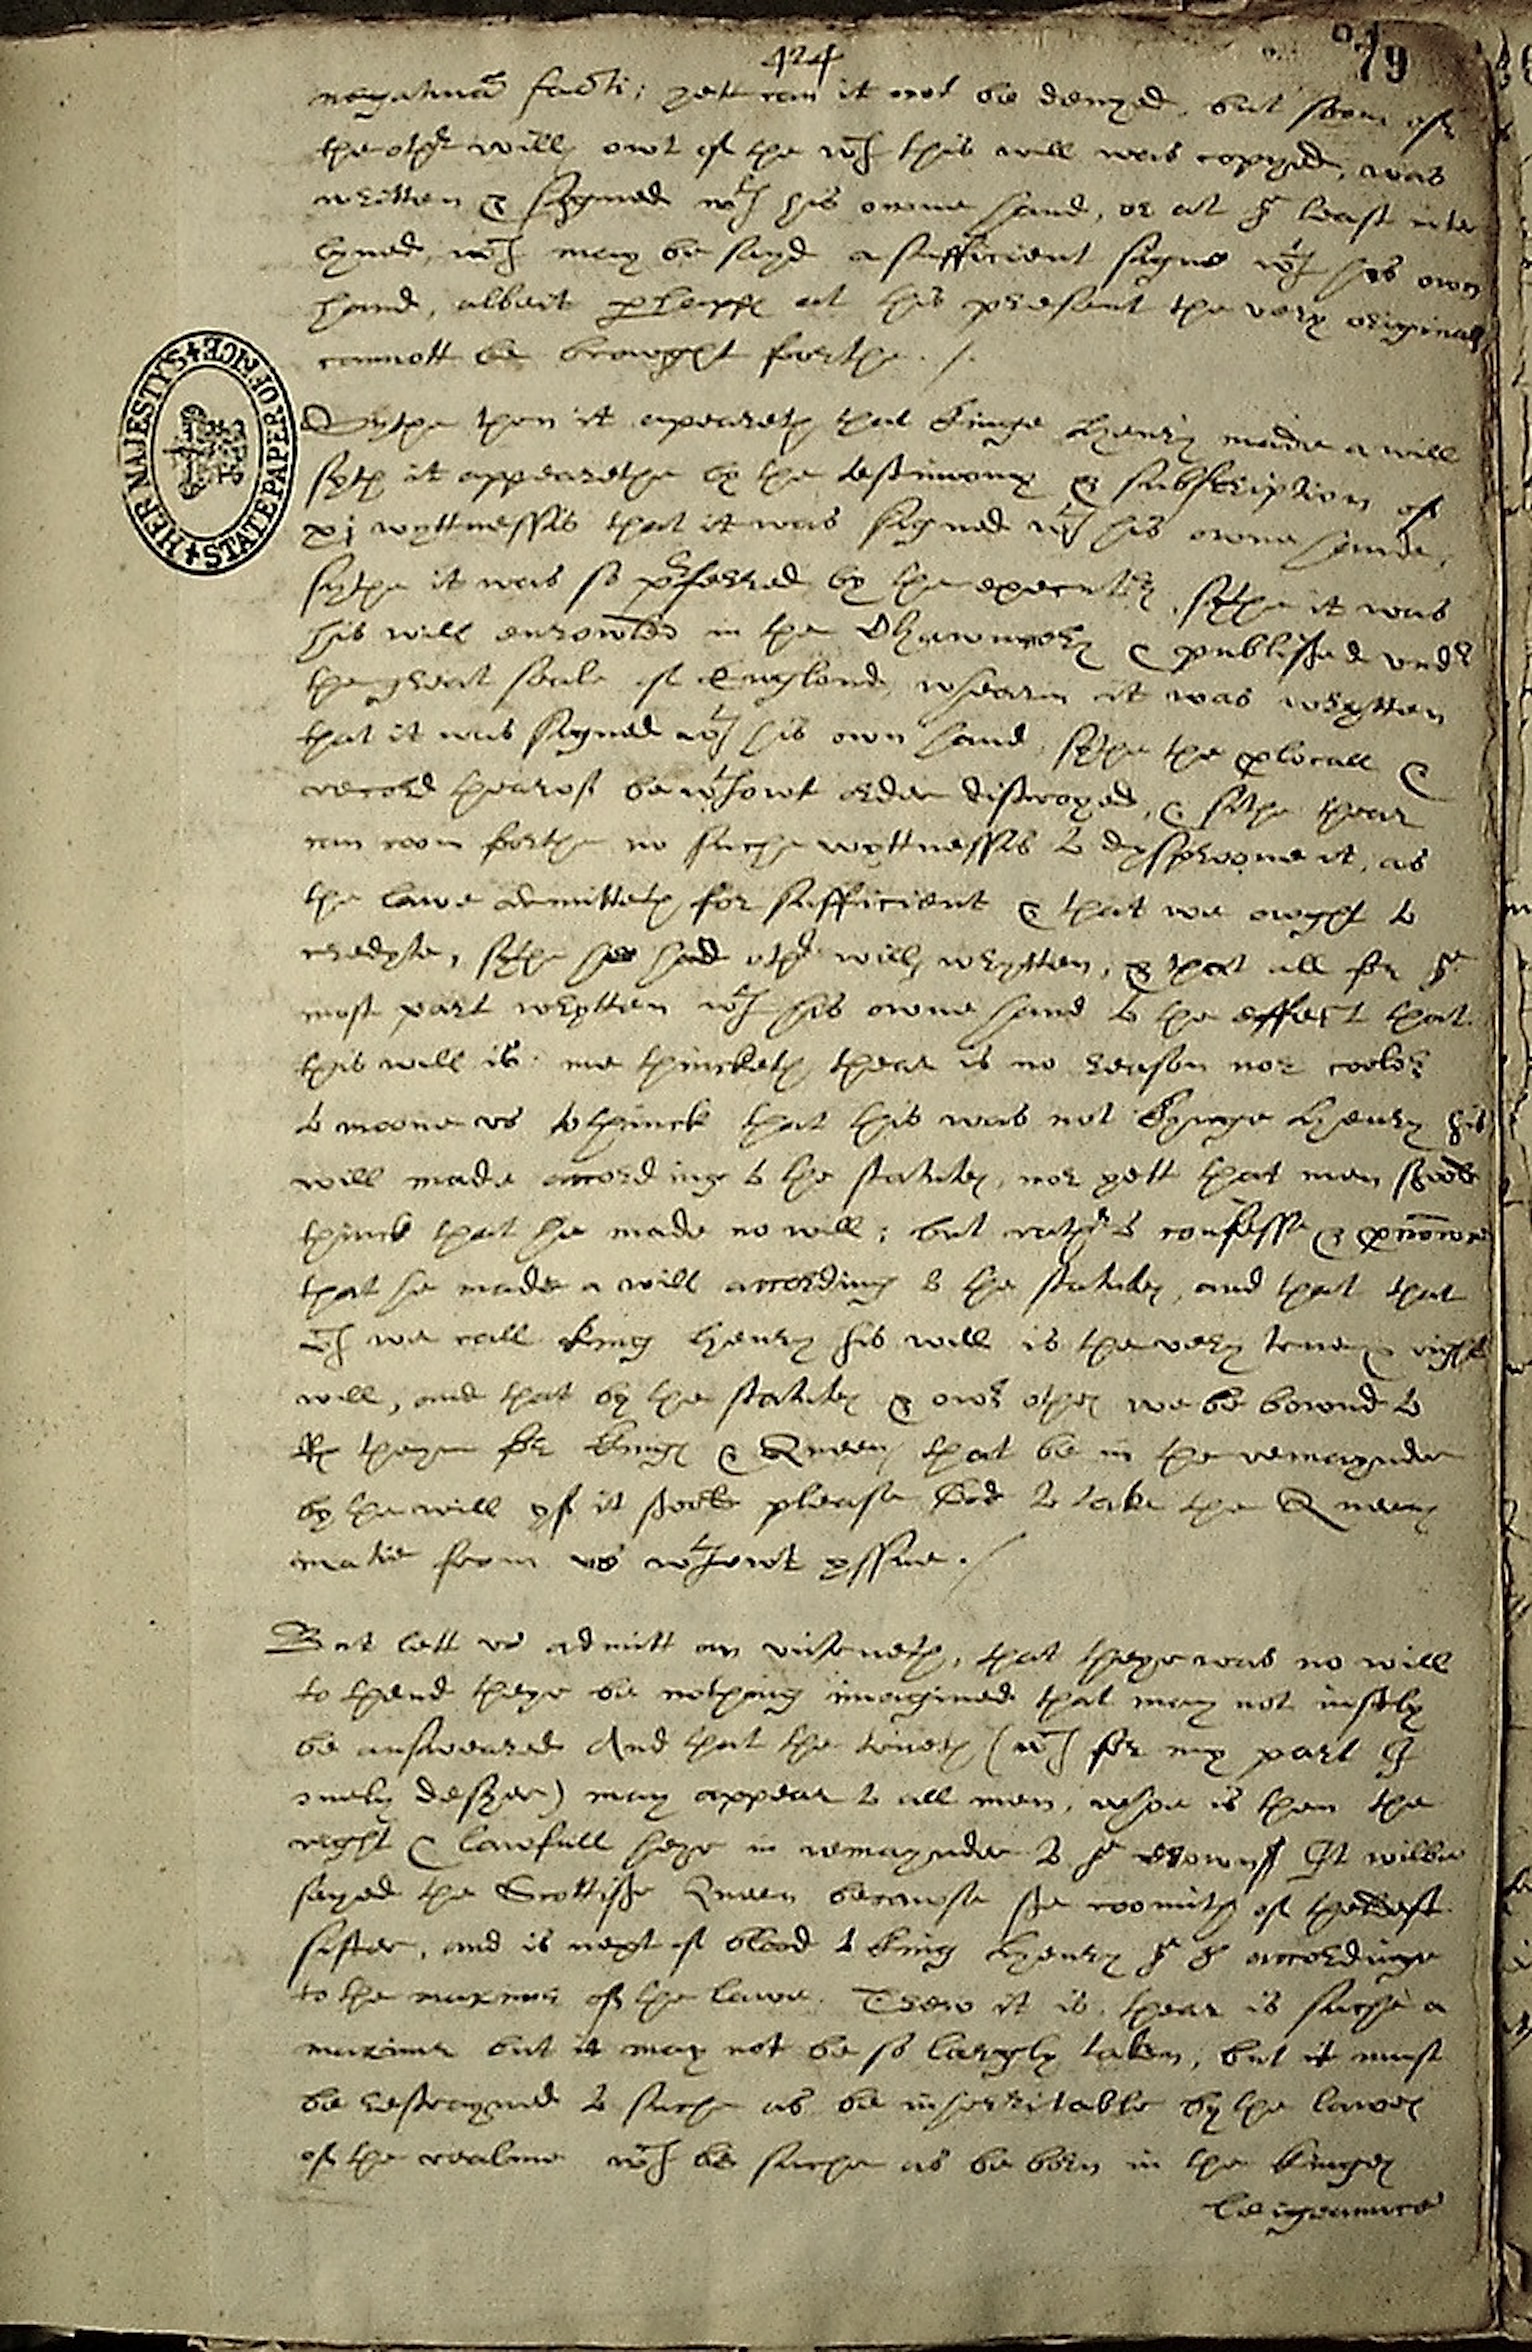 424
79
negativa facti; yett can it not be denyed, but soom of
the other willes owt of the wch this will was copyed, was
written & signed wth his owne hand, or at ye least inter
lyned, wch may be sayd a sufficient signe wth his own
hand, albeit perhapps at this present the very originall
cannott be browght forthe ./.
HER MAJESTY'S STATE PAPER OFFICE
Sythe then it apeareth that Kinge Henry made a will
syth it appearethe by the testimony & subscription of
xj wyttnessis that it was signed wth his owne hande,
sythe it was so preferred by the executors, sythe it was
his will enrowled in the Chawncery & published under
the great seale of England, whearin it was wrytten
that it was signed wth his own hand, sythe the
record thearof be wthowt order distroyed, & sithe thear
can coom forthe no suche wyttnessis to dysproove it, as
the lawe admitteth for sufficient & that we owght to
credyte, sythe hee had other willes wrytten, & that all for ye
most part wrytten wth his owne hand to the effect that
this will is: me thincketh thear is no reason nor coolor
to moove us to thinck that this was not Kynge Henry his
will made according to the statutes, nor yett that men shoold
thinck that he made no will; but rather to confesse &
that he made a will according to the statutes, and that that
wch we call King Henry his will is the very trewe & right
will, and that by the statutes & owr othes we be bownd to
theym for Kinges & Queenes that be in the remaynder
by the will yf it shoold please God to take the Queenes
matie from us wthowt yssue ./
But lett us admitt an untrueth, that there was no will
to thend there be nothing imagined that may not iustly
be answeared And that the trueth (wch for my part I
onely desyer) may appear to all men, whoe is then the
right & lawfull heyr in remaynder to ye crowne It wilbe
sayed the Scottishe Queen becawse she coomith of theldest
sister, and is next of blood to King Henry ye 8 accordinge
to the maxime of the lawe. Trew it is, thear is suche a
maxime but it may not be so largly taken, but it must
be restrayned to suche as be inherritable by the lawes
of the realme wch be suche as be born in the Kinges
leigeaunce